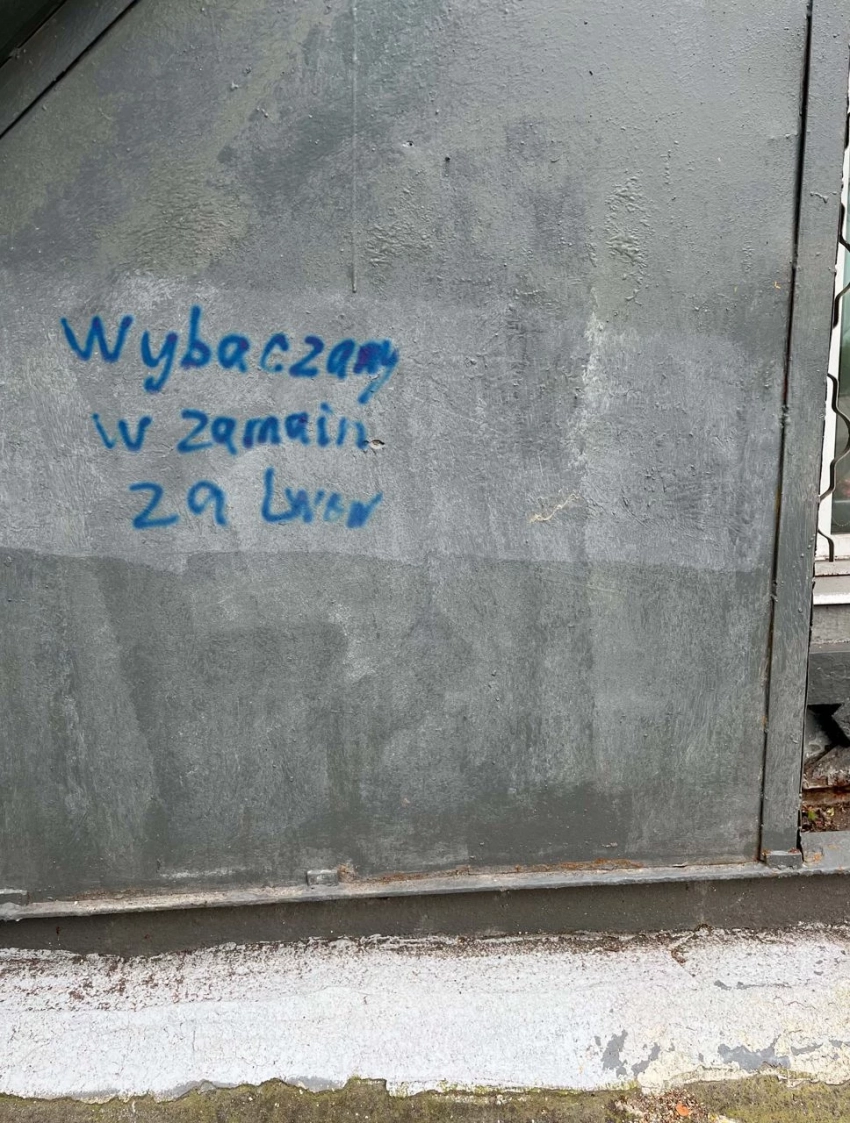 Wybaczamy
w zamain
za Lwow